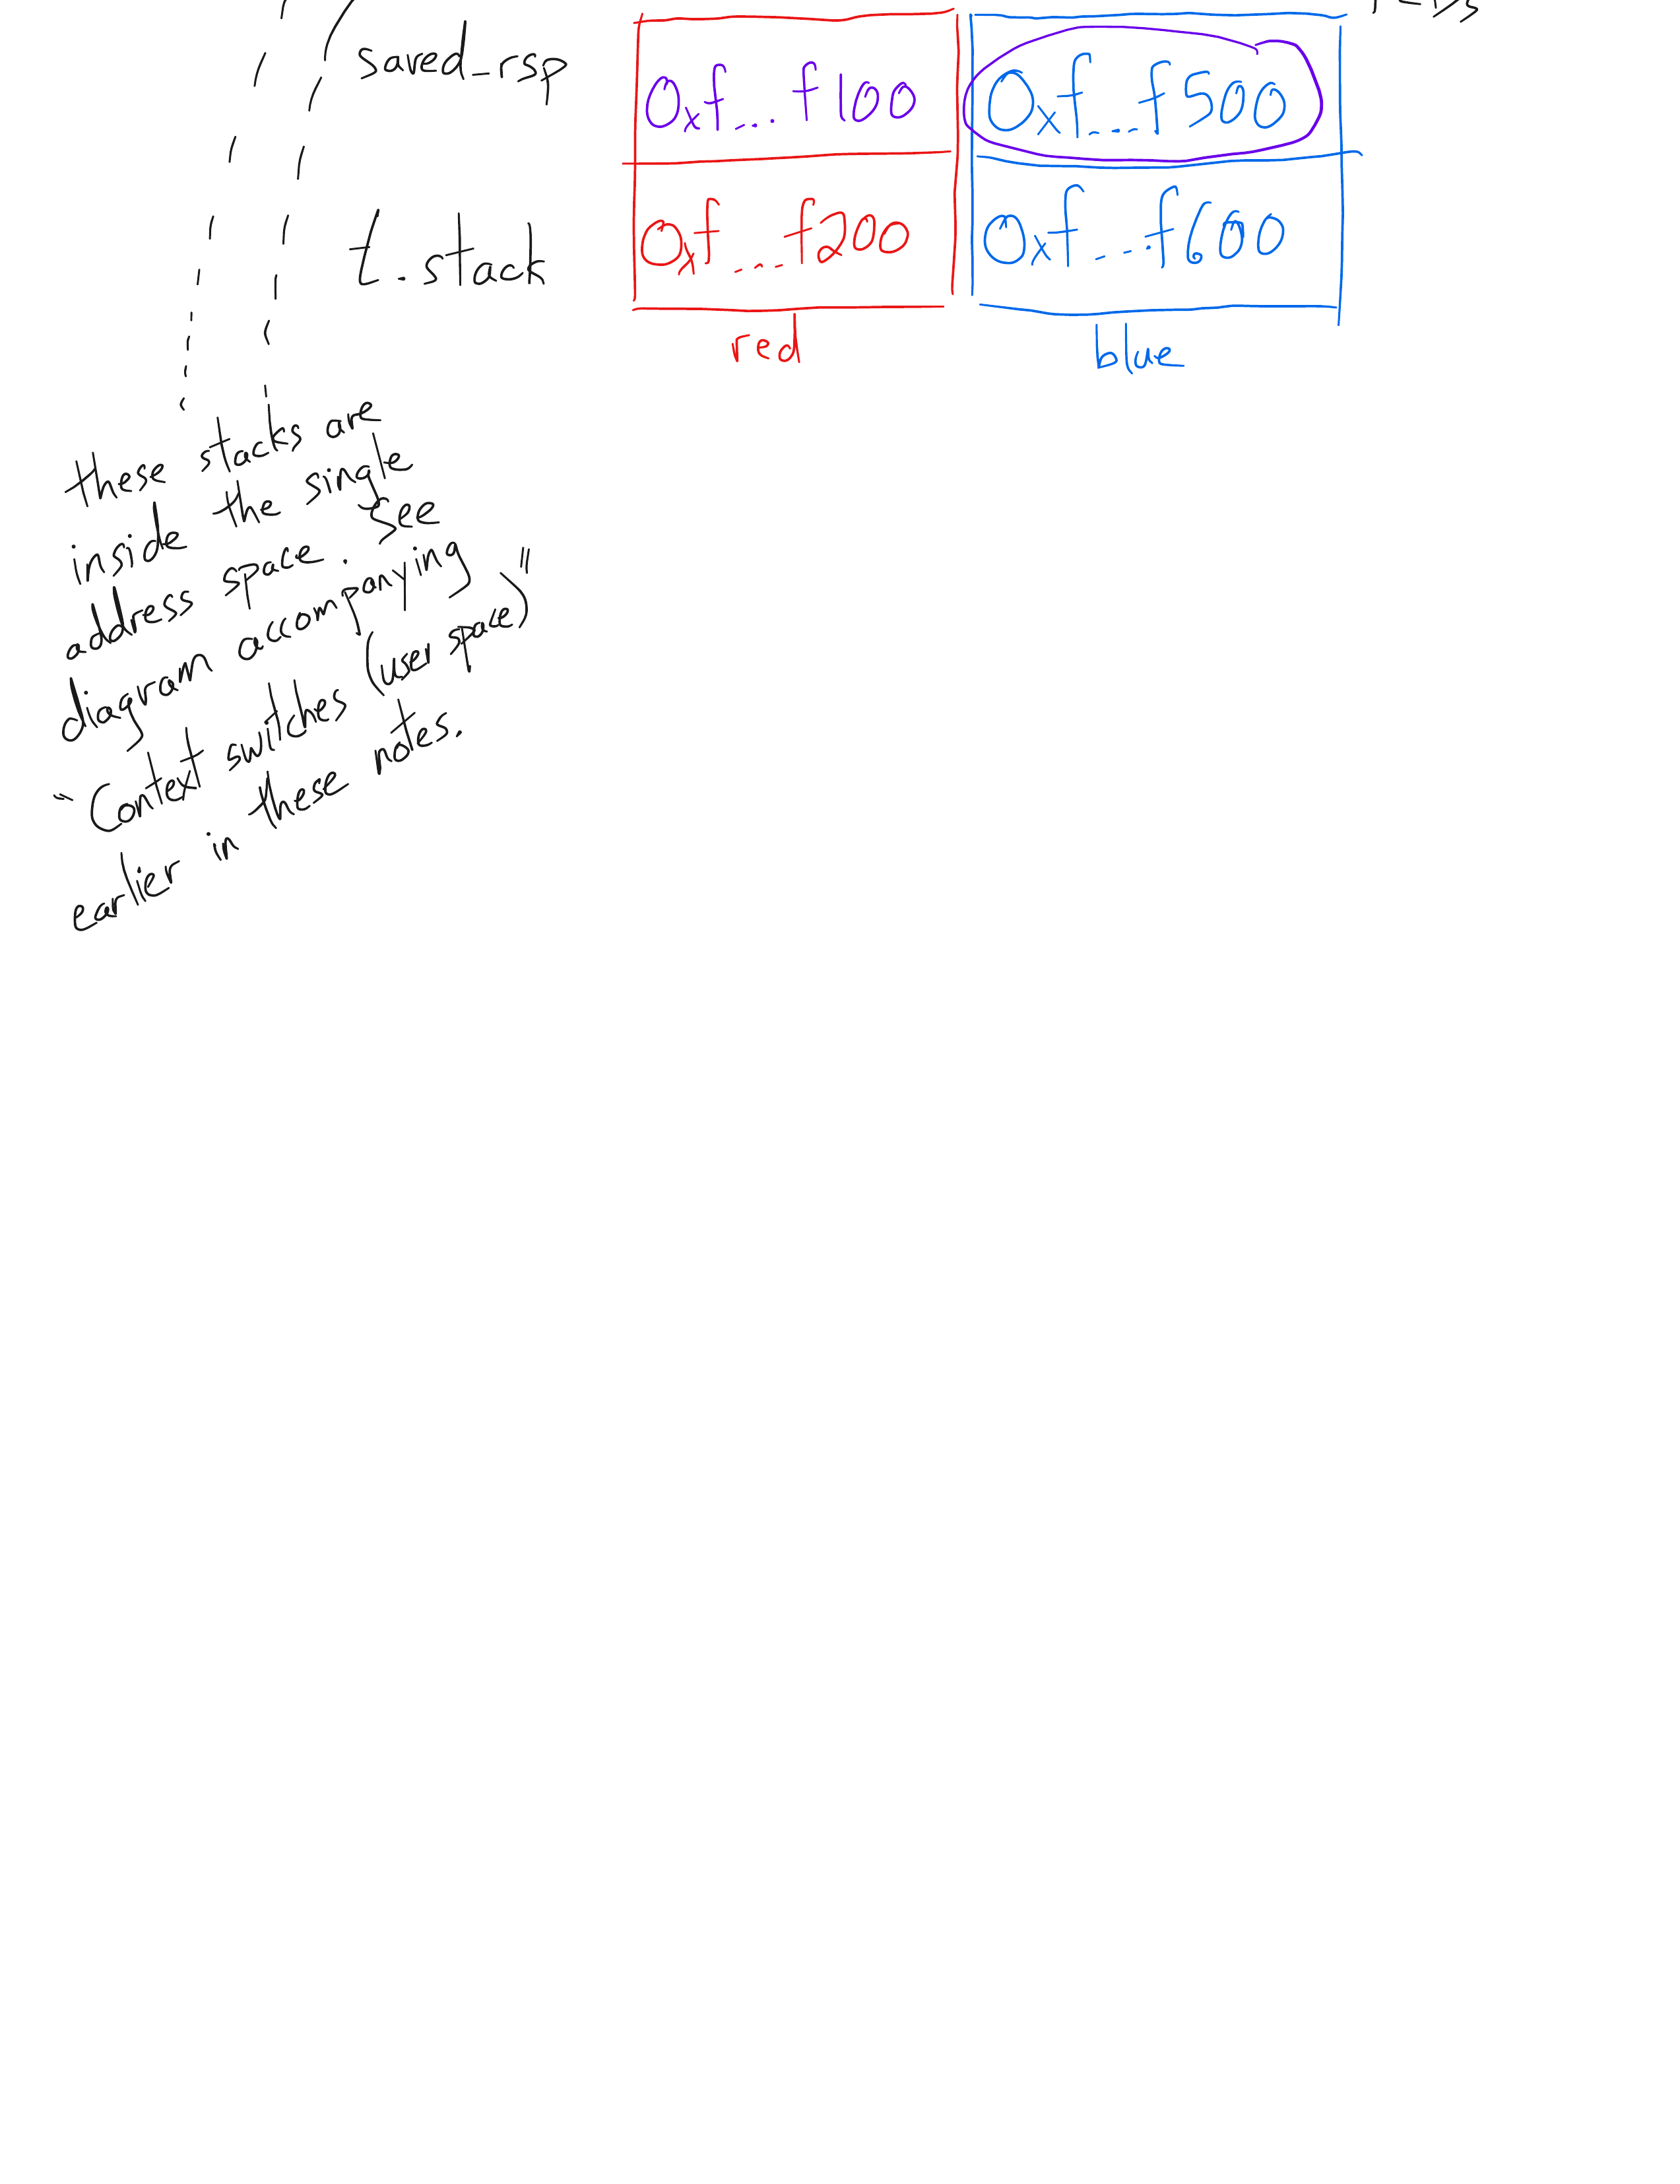 saved_rsp 0xf...f100 0xf...f500
t.stack 0xf...f200 0xf...f600
red blue
these stacks are
inside the single
address space. See
diagram accompanying
"Context switches (user space)"
earlier in these notes.